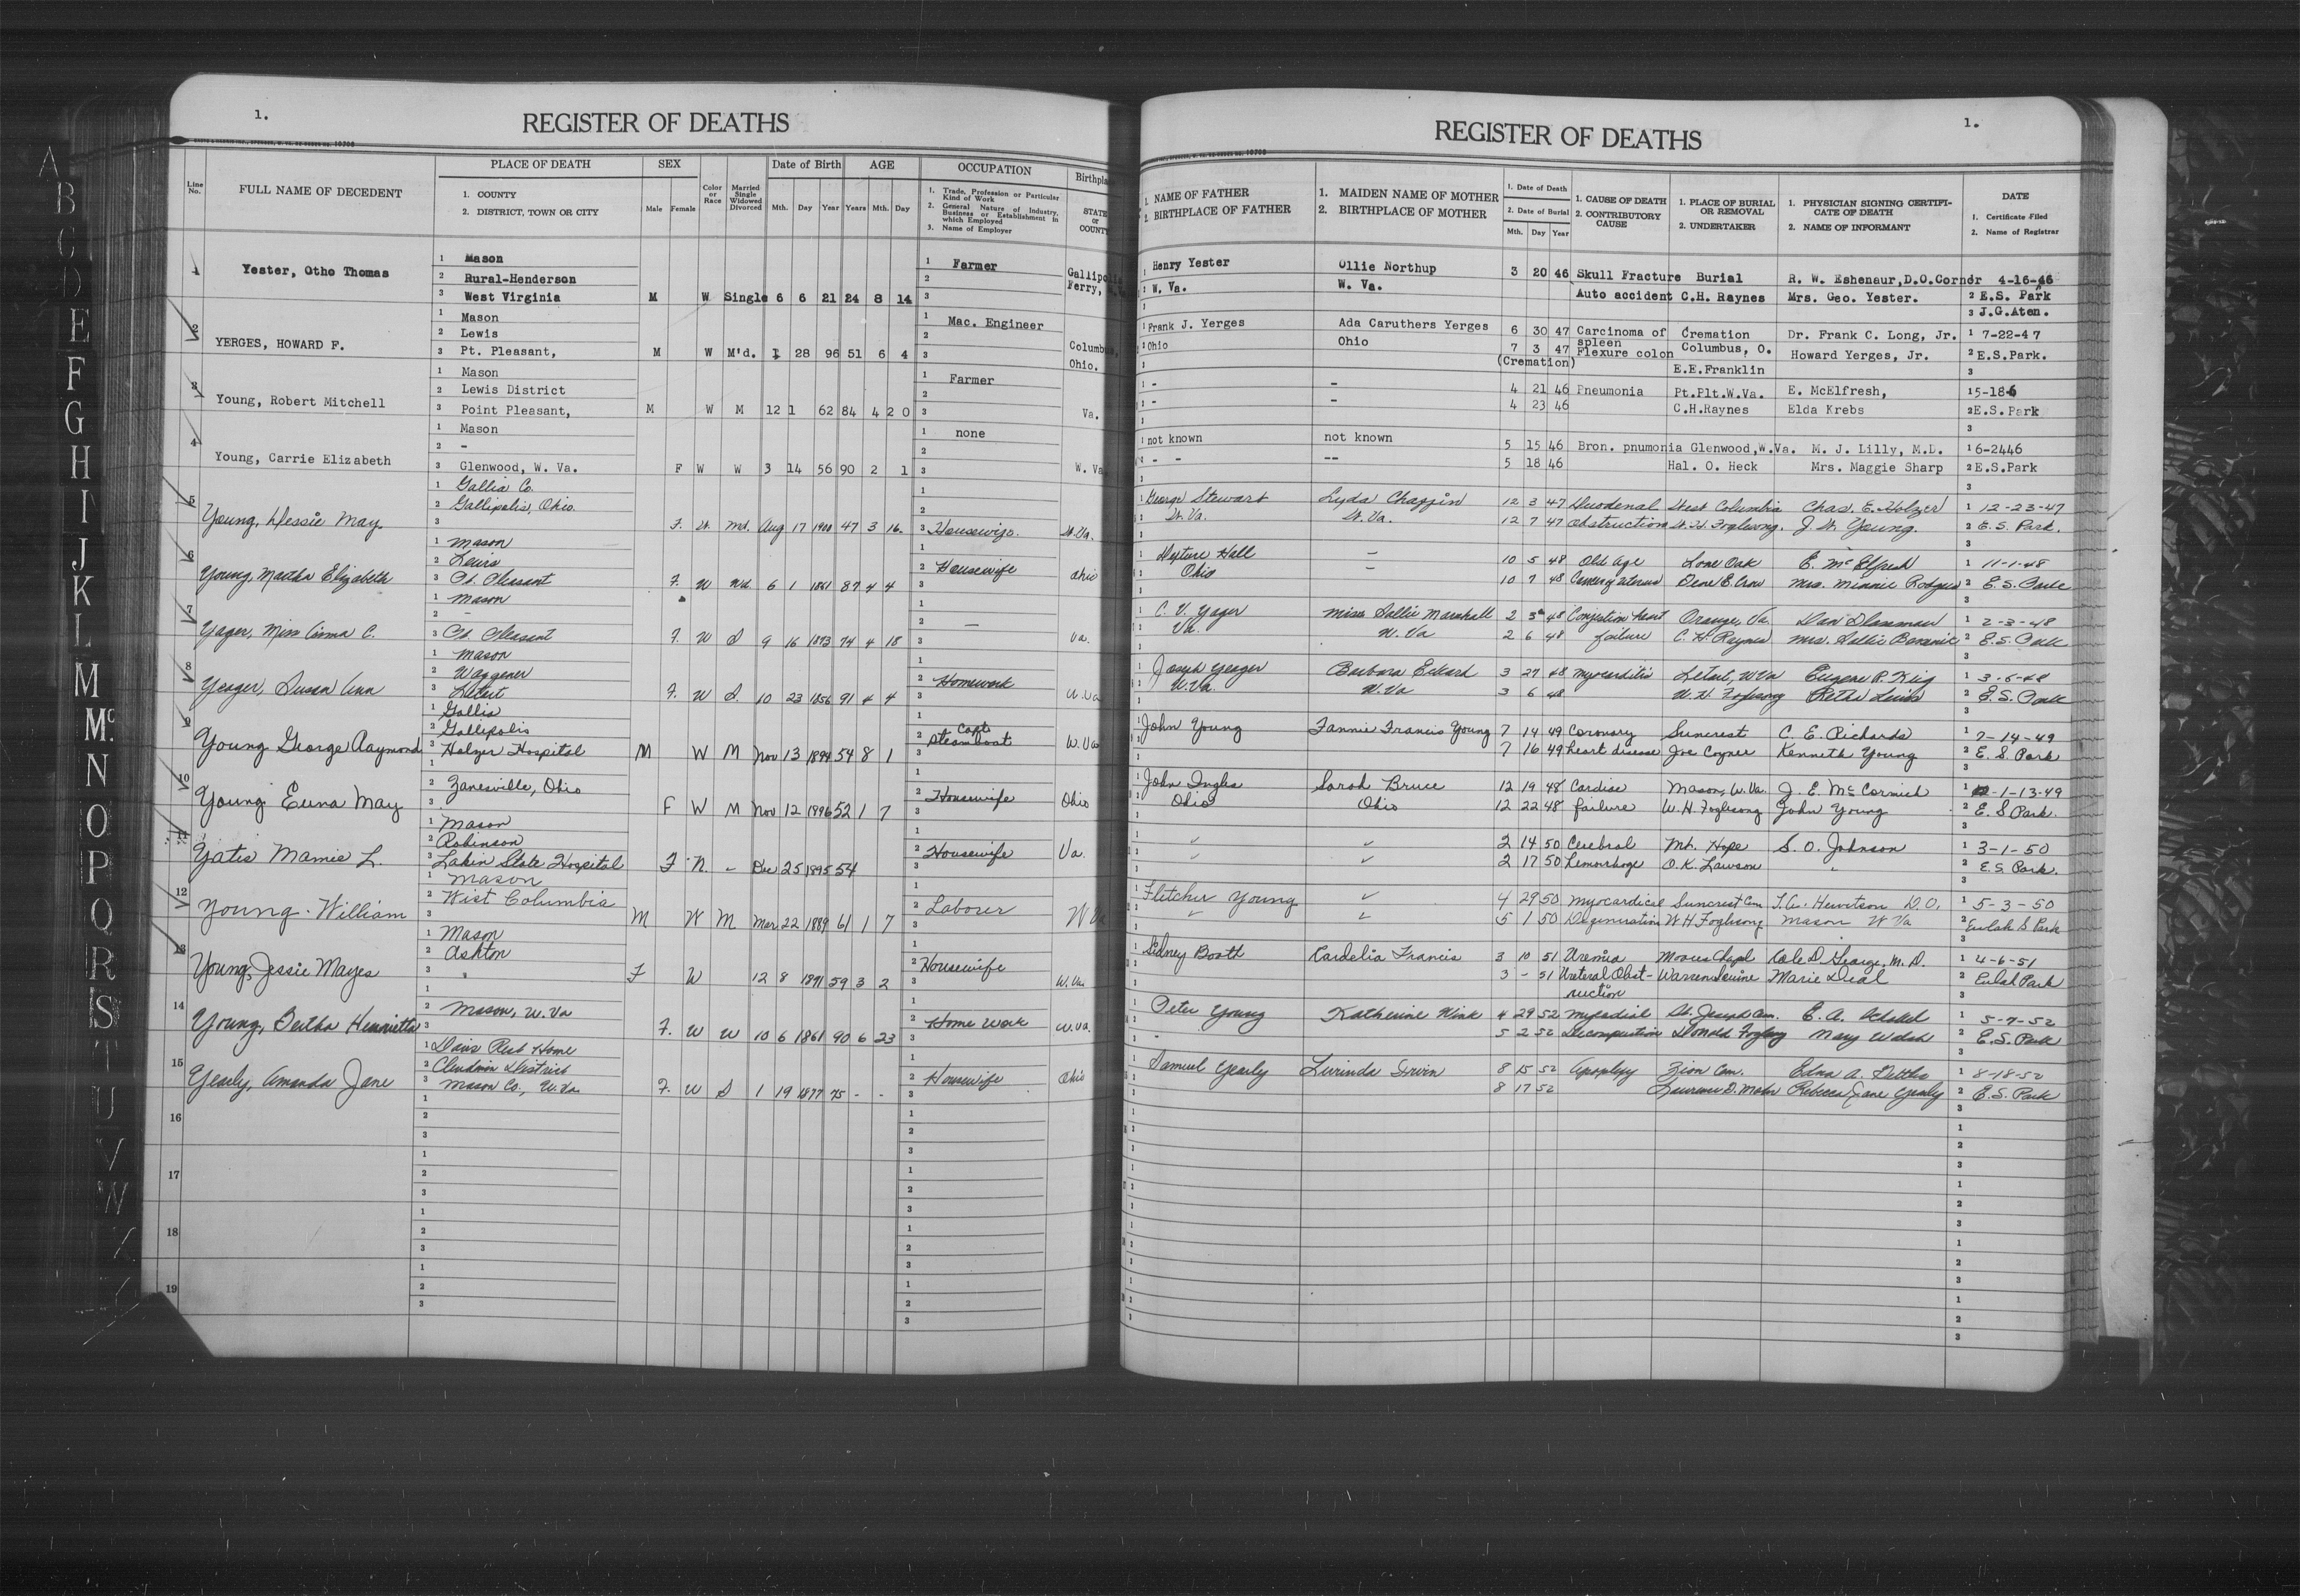 1.
REGISTER OF DEATHS
Line No.
FULL NAME OF DECEDENT
PLACE OF DEATH
1. COUNTY
2. DISTRICT, TOWN OR CITY
SEX
Male Female
Color or Race
Married Single Widowed Divorced
Date of Birth
Mth. Day Year
AGE
Years Mth. Day
OCCUPATION
1. Trade, Profession or Particular Kind of Work
2. General Nature of Industry, Business or Establishment in which Employed
3. Name of Employer
STATE OR COUNT
1 Yester, Otho Thomas
1 Mason
2 Rural-Henderson
3 West Virginia
M W Single 6 6 21 24 8 14
1 Farmer
Gallipolis Ferry,
2 YERGES, HOWARD F.
1 Mason
2 Lewis
3 Pt. Pleasant,
M W M'd. 1 28 96 51 6 4
1 Mac. Engineer
Columbus, Ohio.
3 Young, Robert Mitchell
1 Mason
2 Lewis District
3 Point Pleasant,
M W M 12 1 62 84 4 20
1 Farmer
Va.
4 Young, Carrie Elizabeth
1 Mason
2 -
3 Glenwood, W. Va.
F W W 3 14 56 90 2 1
1 none
W. Va
5 Young, Dessie May
1 Gallia Co.
2 Gallipolis, Ohio.
3
F. W. Md. Aug 17 1900 47 3 16
3 Housewife.
W.Va.
6 Young, Martha Elizabeth
1 Mason
2 Lewis
3 Pt. Pleasant
F. W Wd. 6 1 1861 87 4 4
2 Housewife
Ohio
7 Yager, Miss Cisma C.
1 Mason
2 -
3 Pt. Pleasant
F. W S 9 16 1873 74 4 18
2 -
Va.
8 Yeager, Susan Ann
1 Mason
2 Waggener
3 Letart
F. W S. 10 23 1856 91 4 4
2 Homework
W.Va
9 Young George Raymond
1 Gallia
2 Gallipolis
3 Holzer Hospital
M W M Nov 13 1894 54 8 1
Capt
2 Steamboat
W.Va
10 Young Euna May
1
2 Zanesville, Ohio
3
F W M Nov 12 1896 52 1 7
2 Housewife
Ohio
11 Yates Mamie L.
1 Mason
2 Robinson
3 Lakin State Hospital
F N. - Dec 25 1895 54
2 Housewife
Va.
12 Young William
1 Mason
2 West Columbia
3
M W M Mar 22 1889 61 1 7
2 Laborer
W Va
13 Young, Jessie Mayes
1 Mason
2 Ashton
3
F W 12 8 1891 59 3 2
2 Housewife
W.Va
14 Young, Bertha Henrietta
1
2 Mason, W.Va
3
F. W W 10 6 1861 90 6 23
2 Home Work
W.Va.
15 Yearly, Amanda Jane
1 Davis Rest Home
2 Clendenin District
3 Mason Co., W.Va
F. W S 1 19 1877 75 - -
2 Housewife
Ohio
16
17
18
19
1.
REGISTER OF DEATHS
1. NAME OF FATHER
2. BIRTHPLACE OF FATHER
1. MAIDEN NAME OF MOTHER
2. BIRTHPLACE OF MOTHER
1. Date of Death
2. Date of Burial
Mth. Day Year
1. CAUSE OF DEATH
2. CONTRIBUTORY CAUSE
1. PLACE OF BURIAL OR REMOVAL
2. UNDERTAKER
1. PHYSICIAN SIGNING CERTIFICATE OF DEATH
2. NAME OF INFORMANT
DATE
1. Certificate Filed
2. Name of Registrar
Henry Yester Ollie Northup 3 20 46 Skull Fracture Burial R. W. Eshenaur,D.O.Cornor 4-16-46
W. Va. W. Va. Auto accident C.H. Raynes Mrs. Geo. Yester. 2 E.S. Park
3 J.G.Aten.
Frank J. Yerges Ada Caruthers Yerges 6 30 47 Carcinoma of spleen Cremation Dr. Frank C. Long, Jr. 1 7-22-47
Ohio Ohio 7 3 47 Flexure colon Columbus, O. Howard Yerges, Jr. 2 E.S.Park.
(Cremation) E.E.Franklin 3
- - 4 21 46 Pneumonia Pt.Plt.W.Va. E. McElfresh, 1 5-186
- - 4 23 46 C.H.Raynes Elda Krebs 2 E.S.Park
not known not known 5 15 46 Bron. pnumonia Glenwood,W.Va. M. J. Lilly, M.D. 1 6-2446
- - -- 5 18 46 Hal. O. Heck Mrs. Maggie Sharp 2 E.S.Park
George Stewart Lyda Chappin 12 3 47 Duodenal West Columbia Chas. E. Holzer 1 12-23-47
W.Va. W.Va. 12 7 47 obstruction W.H. Foglesong. J. W. Young. 2 E.S. Park.
Hall - 10 5 48 Old Age Lone Oak E. McElfresh 1 11-1-48
Ohio - 10 7 48 Cancer, uterus Gene E. Crow Mrs. Minnie Rodgers 2 E.S. Park
C. V. Yager Miss Sallie Marshall 2 3 48 Congestion heart Orange, Va. Dan Glassman 1 2-3-48
Va. W.Va 2 6 48 failure C. H. Raynes Mrs. Sallie 2 E.S. Park
Joseph Yeager Barbara Eckard 3 27 48 Myocarditis Letart, W.Va Eugene P. King 1 3-6-48
W.Va. W.Va 3 6 48 W. H. Foglesong Retha Lewis 2 E.S. Park
John Young Fannie Francis Young 7 14 49 Coronary Suncrest C. E. Richards 1 7-14-49
7 16 49 heart disease Joe Coyner Kenneth Young 2 E. S. Park
John Ingles Sarah Bruce 12 19 48 Cardiac Mason, W.Va. J. E. McCormick 1 1-13-49
Ohio Ohio 12 22 48 failure W. H. Foglesong John Young 2 E. S Park.
2 14 50 Cerebral Mt. Hope S. O. Johnson 1 3-1-50
2 17 50 Hemorrhage O.K. Lawson " 2 E.S. Park.
Fletcher Young 4 29 50 Myocardial Suncrest Cem J.W. Hewitson D.O. 1 5-3-50
5 1 50 Degeneration W H Foglesong Mason W Va 2 Eulah S Park
Sidney Booth Kardelia Francis 3 10 51 Uremia Moores Chapel Cole D. George, M.D. 1 4-6-51
3 - 51 Ureteral Obst- Warren Levine Marie Deal 2 Eulah Park
ruction
Peter Young Katherine Wink 4 29 52 Myocardial St. Joseph Cem. E. A. 1 5-7-52
- 5 2 52 Decompensation Donald Foglesong Mary Walsh 2 E.S. Park
Samuel Yearly Lurinda Irvin 8 15 52 Apoplexy Zion Cem. Edna A. 1 8-18-52
8 17 52 Rebecca Jane Yearly 2 E.S. Park
A
B
C
D
E
F
G
H
I
J
K
L
M
Mc.
N
O
P
Q
R
S
T
U
V
W